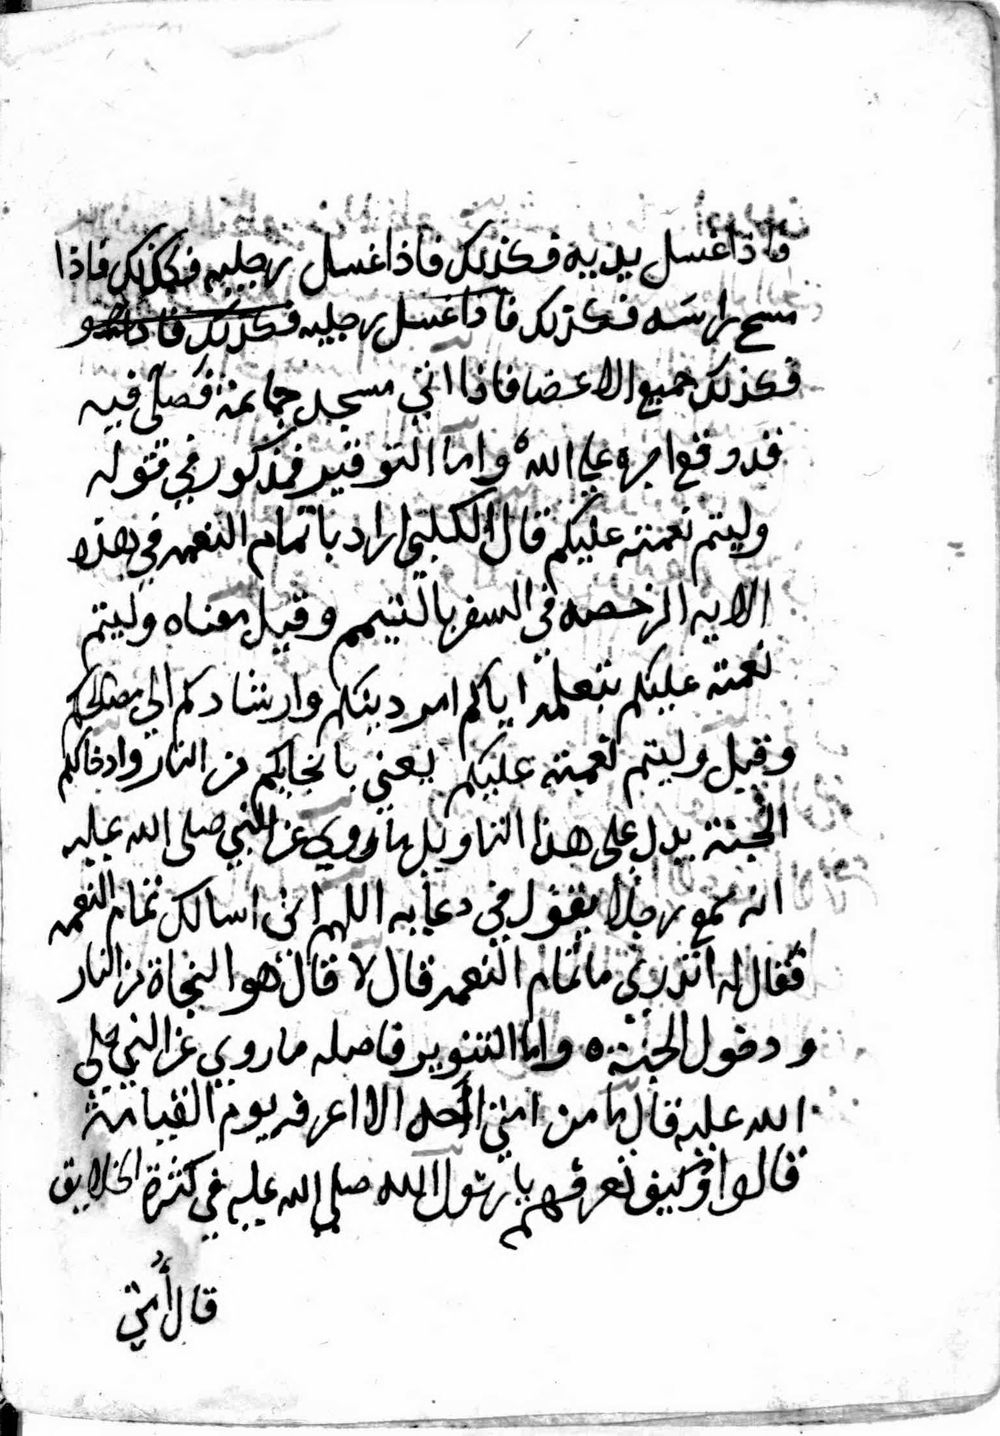 فاذا غسل يديه فكذلك فاذا غسل رجليه فكذلك فاذا
مسح راسه فكذلك فاذا غسل رجليه فكذلك فاذا
فكذلك جميع الاعضا فاذا اتي مسجد جماعة فصلى فيه
فقد وقع اجره على الله واما التوقير فمذكور في قوله
وليتم نعمته عليكم قال الكلبي اراد باتمام النعمه في هذه
الايه الرخصه في السفر بالتيمم وقيل معناه وليتم
نعمته عليكم بتعلمه اياكم امر دينكم وارشادكم الي مصالحكم
وقيل وليتم نعمته عليكم يعني بانجايكم من النار وادخالكم
الجنة يدل على هذا التاويل ما روي عن النبي صلى الله عليه
انه سمع رجلا يقول في دعايه اللهم اني اسالك تمام النعمه
فقال له اتدري ما تمام النعمه قال لا قال هو النجاة من النار
ودخول الجنة ه واما التنوير فاصله ما روي عن النبي صلى
الله عليه قال ما من امتي احد الا اعرفه يوم القيامة
قالوا وكيف تعرفهم يا رسول الله صلى الله عليه في كثرة الخلايق
قال أمتي